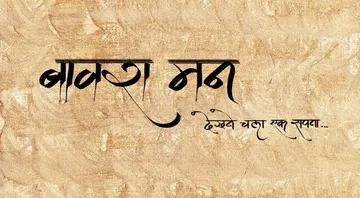 बावरा मन
देखने चला एक सपना...